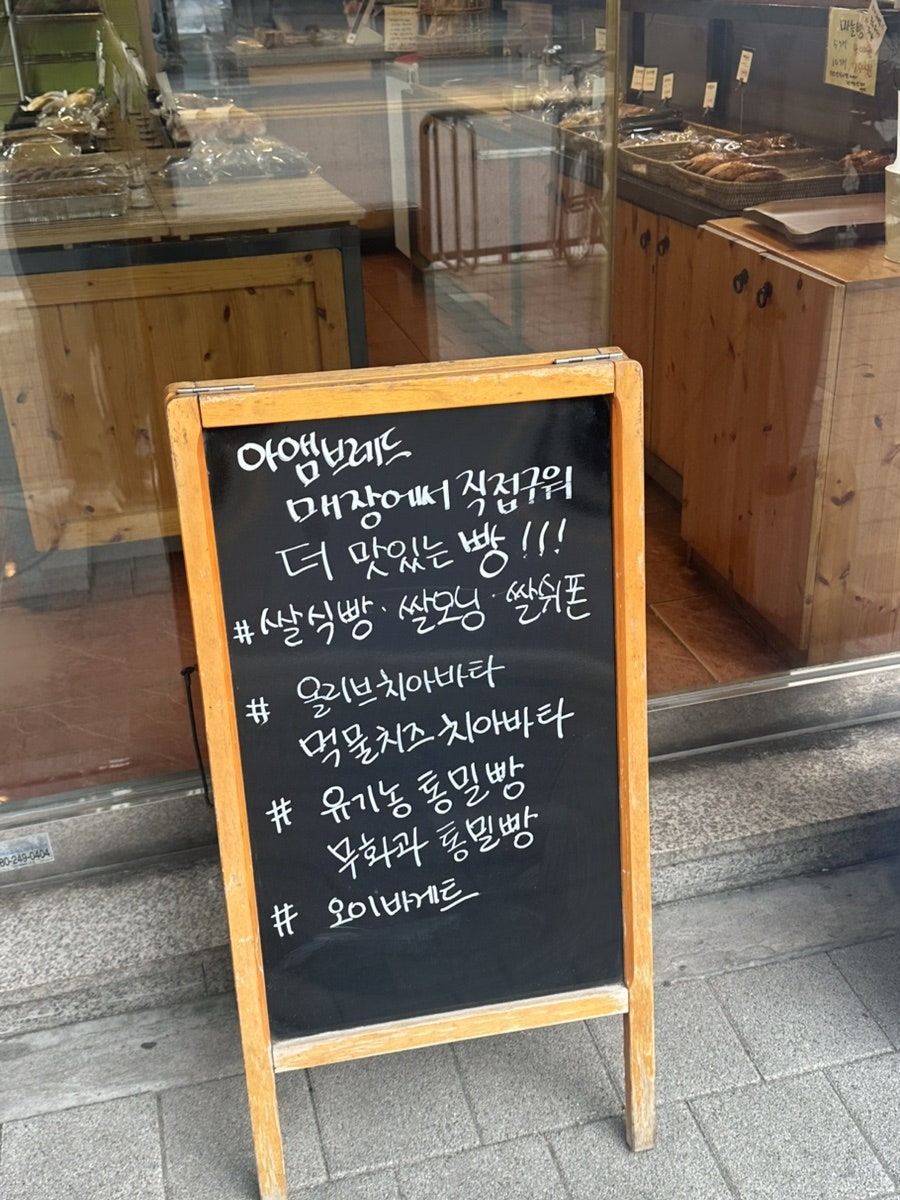 아앰브레드
매장에서 직접구워
더 맛있는 빵!!!
#쌀식빵·쌀모닝·쌀쉬폰
# 올리브치아바타
먹물치즈 치아바타
# 유기농 통밀빵
무화과 통밀빵
# 오이바게트
80-249-0404